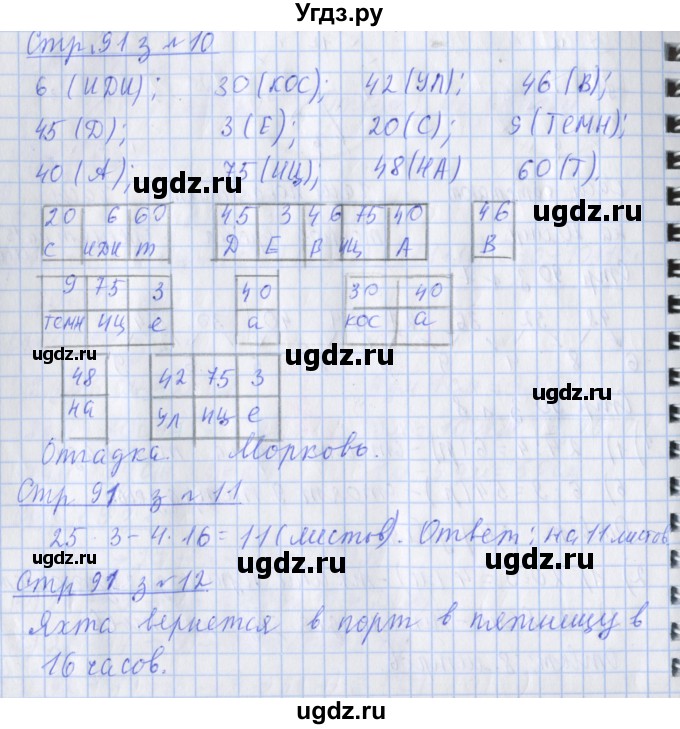 Угдз.ру
Стр. 91 з №10
6 (ИДИ); 30 (КОС); 42 (УЛ); 46 (В);
45 (Д); 3 (Е); 20 (С); 9 (ТЕМН);
40 (А); 75 (ИЦ); 48 (НА) 60 (Т).
ugdz.ru ugdz.ru
20 6 60 45 3 46 75 40 46
С ИДИ Т Д Е В ИЦ А В
ugdz.ru
9 75 3 40 30 40
темн иц е а кос а
ugdz.ru ugdz.ru ugdz.ru
48 42 75 3
на ул иц е
ugdz.ru
Отгадка. Морковь.
Стр 91 з №11
ugdz.ru
25 · 3 - 4 · 16 = 11 (листов). Ответ: на 11 листов
ugdz.ru ugdz.ru
Стр 91 з №12
ugdz.ru
Яхта вернется в порт в пятницу в
16 часов.
ugdz.ru ugdz.ru